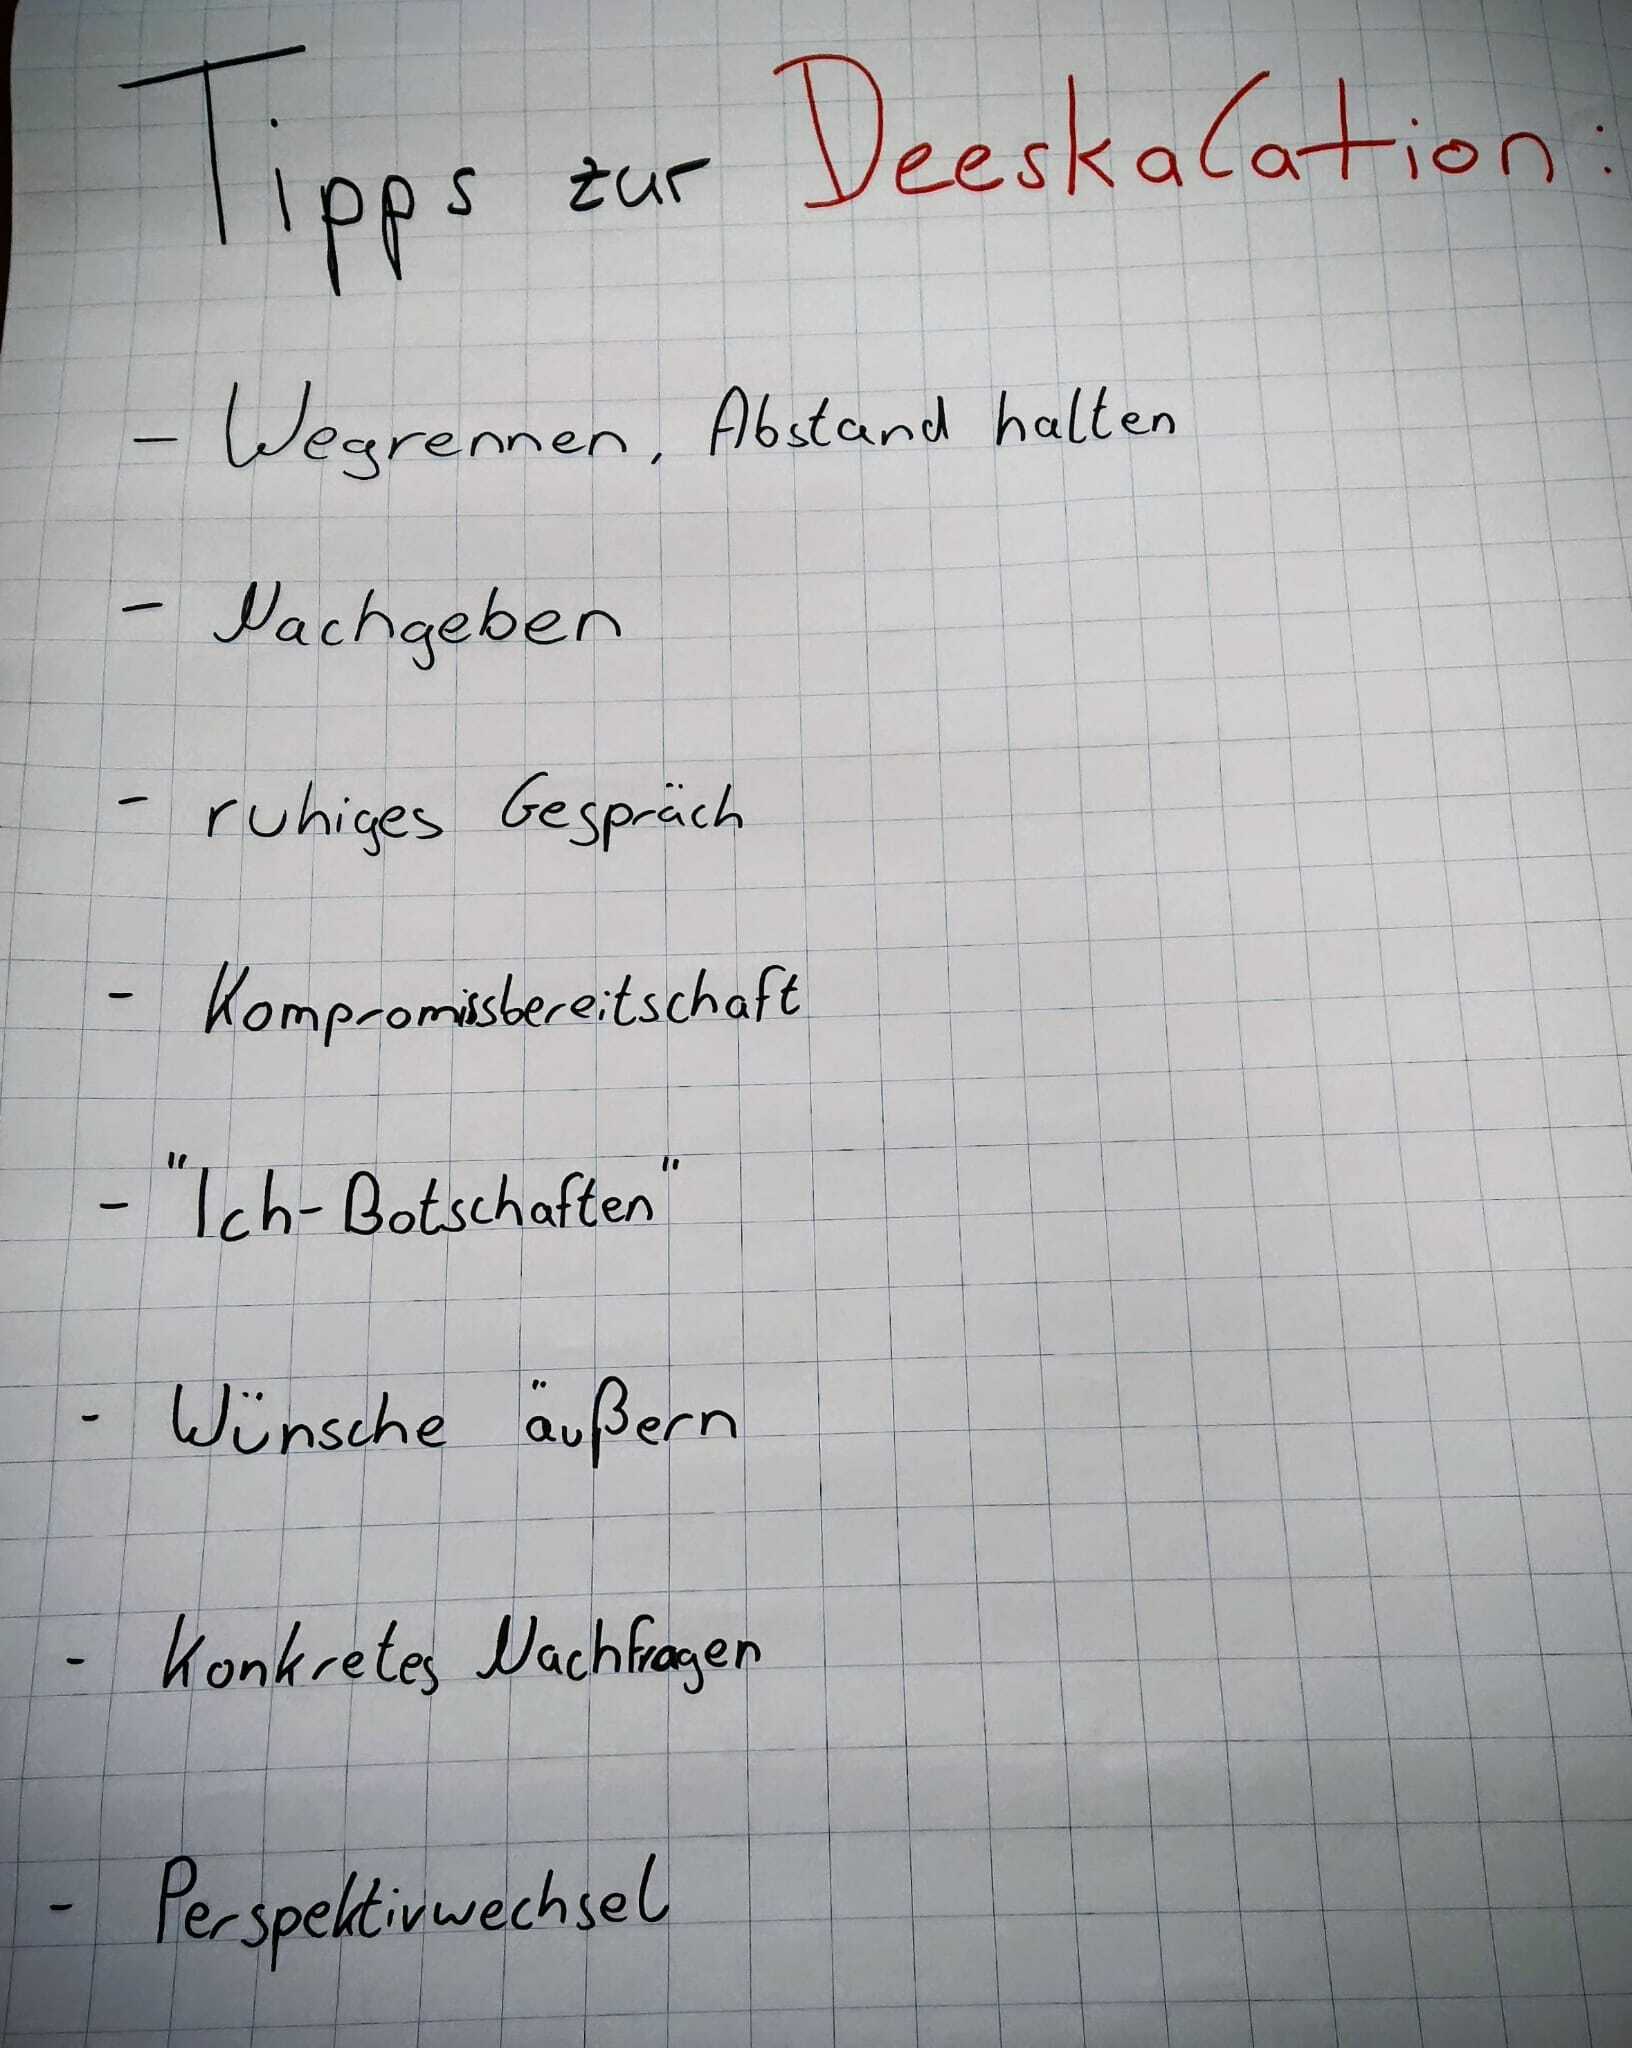 Tipps zur Deeskalation:
- Wegrennen, Abstand halten
- Nachgeben
- ruhiges Gespräch
- Kompromissbereitschaft
- "Ich-Botschaften"
- Wünsche äußern
- Konkretes Nachfragen
- Perspektivwechsel